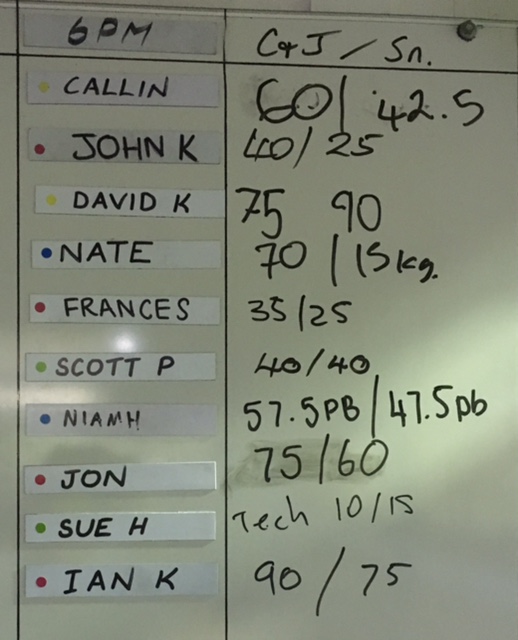 6PM C&J / Sn.
CALLIN 60/ 42.5
JOHN K 40/25
DAVID K 75 90
NATE 70 / 15kg.
FRANCES 35/25
SCOTT P 40/40
NIAMH 57.5PB / 47.5pb
JON 75/60
SUE H Tech 10/15
IAN K 90 / 75